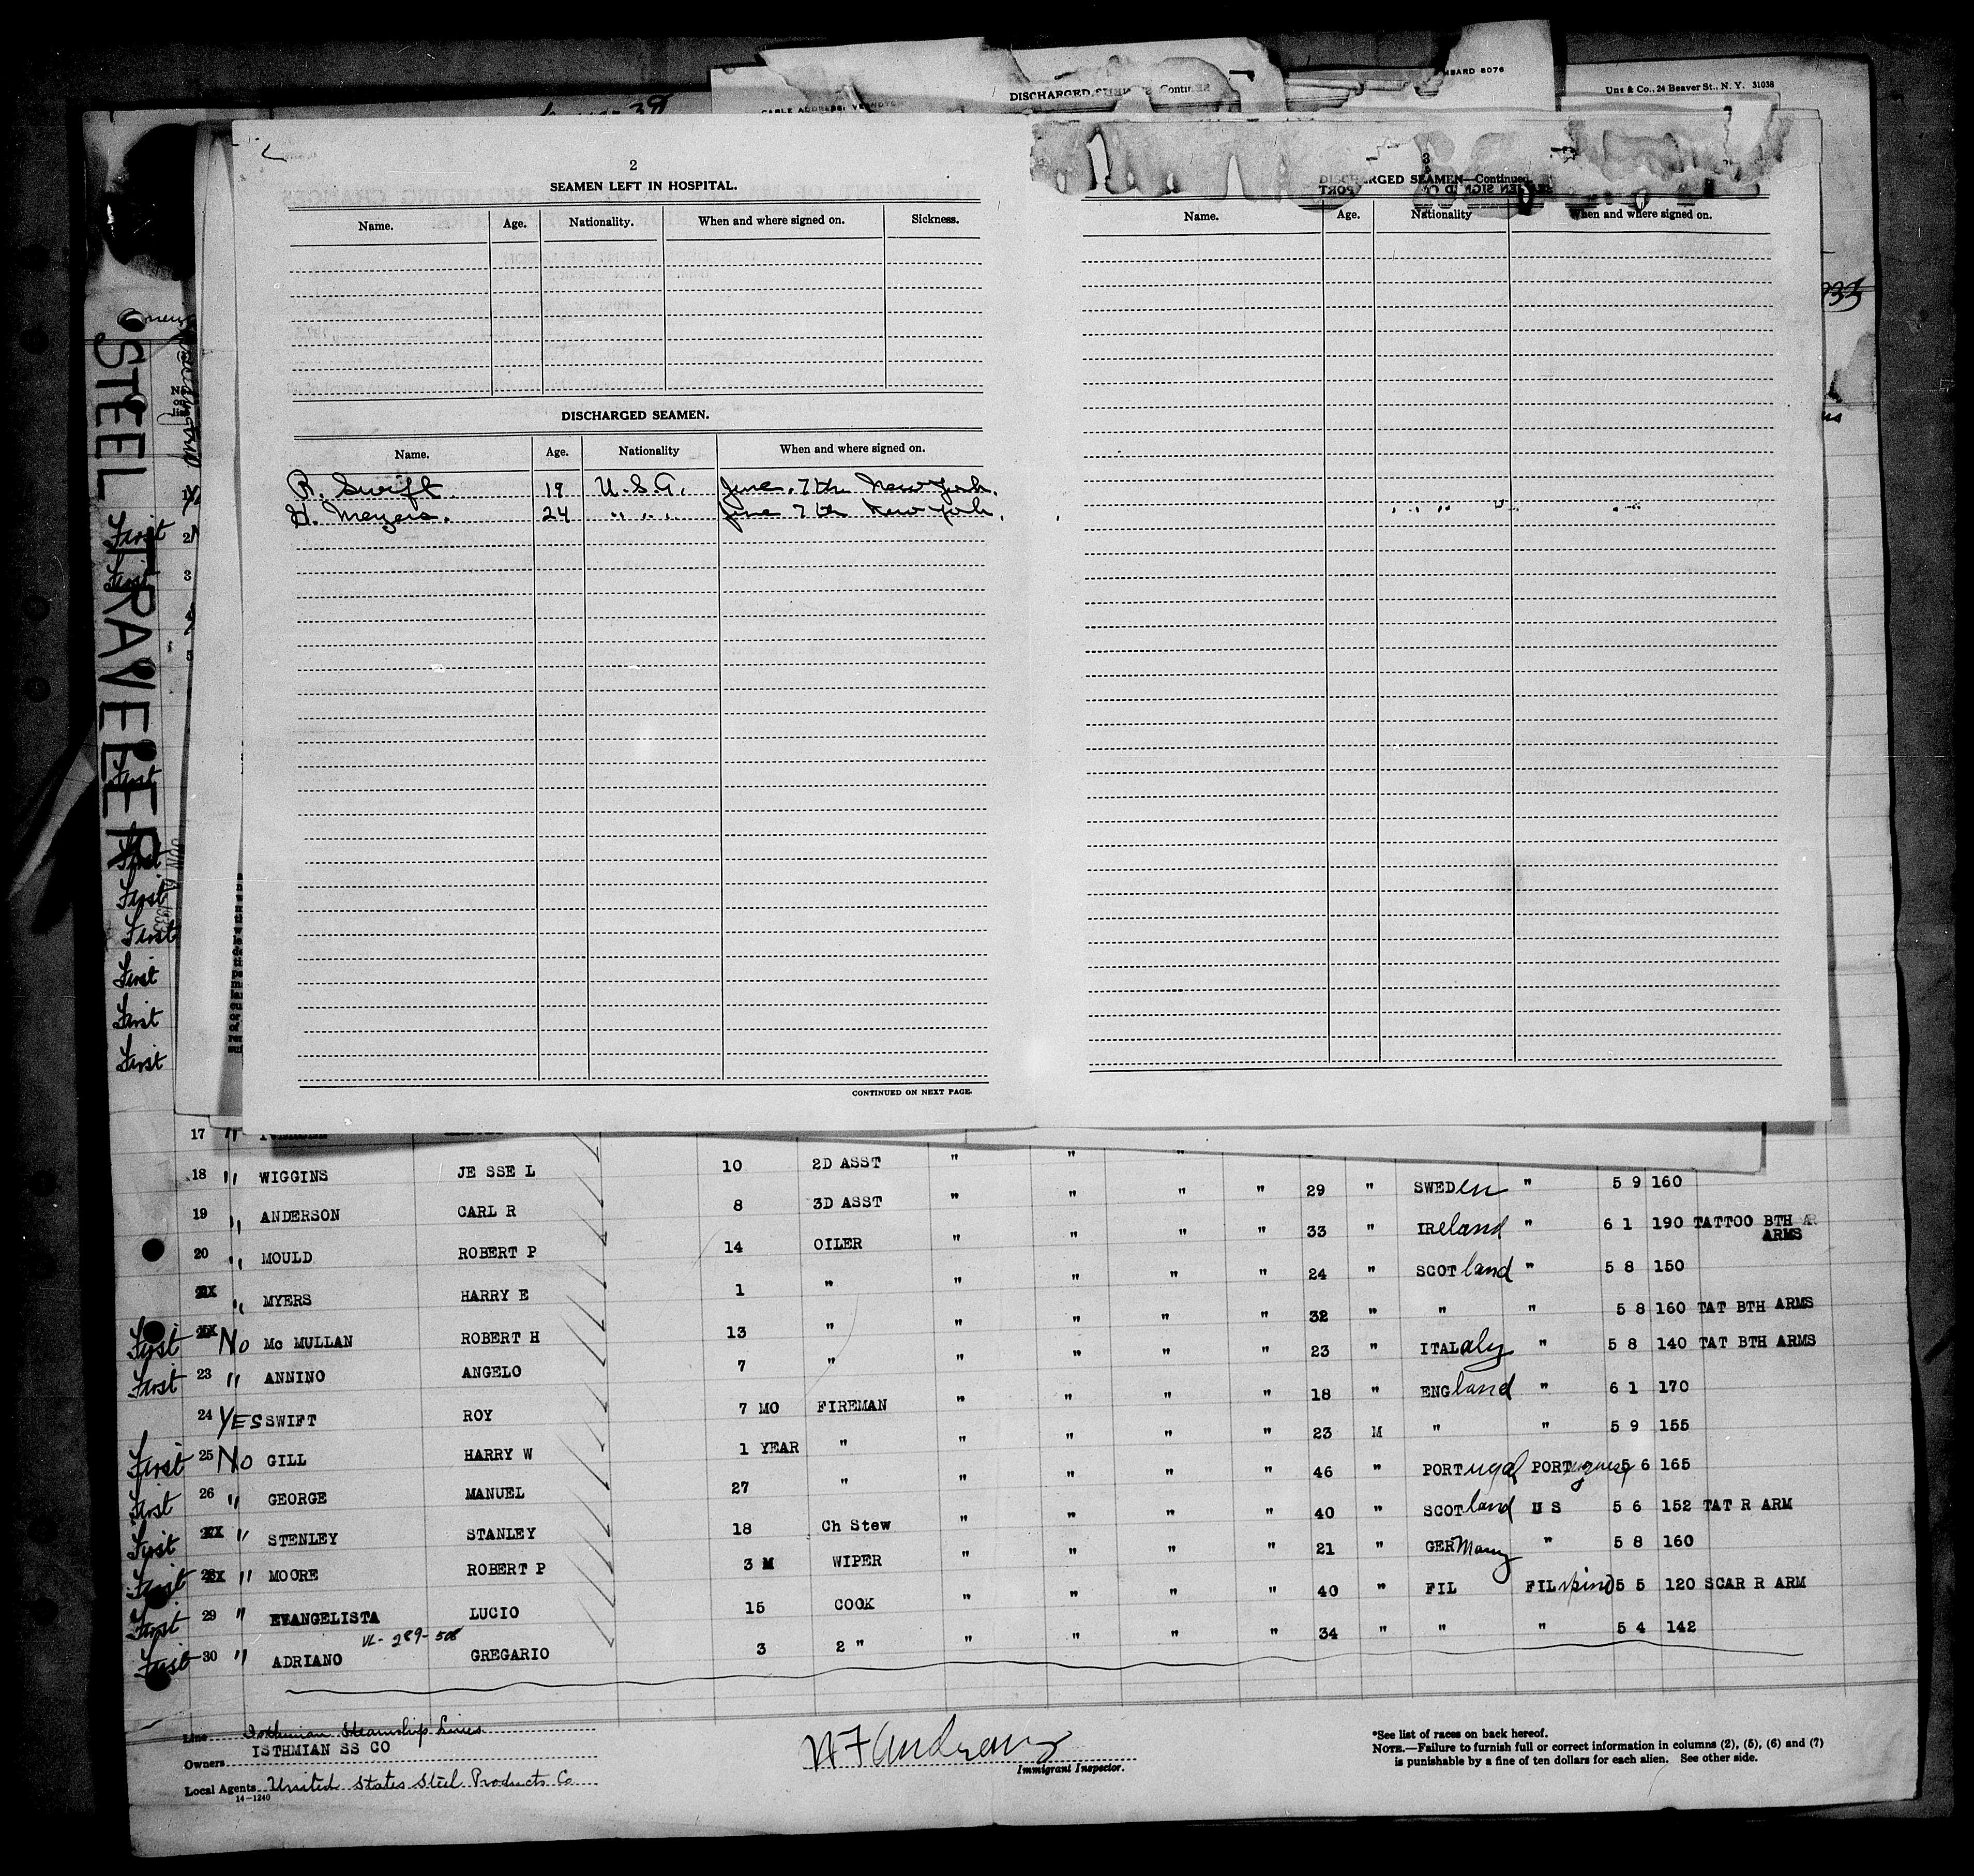 DISCHARGED SEAMEN—Continued
CABLE ADDRESS:
Uns & Co., 24 Beaver St., N. Y. 31038
STEEL TRAVELER
2
SEAMEN LEFT IN HOSPITAL.
Name. Age. Nationality. When and where signed on. Sickness.
DISCHARGED SEAMEN.
Name. Age. Nationality When and where signed on.
R. Swift. 19 U.S.A. June. 7th New York.
H. Meyers. 24 " " " June 7th New York.
CONTINUED ON NEXT PAGE.
3
DISCHARGED SEAMEN—Continued.
Name. Age. Nationality When and where signed on.
First 2
First 3
4
5
First
First
First
First
First
First
First
17 "
18 " WIGGINS JESSE L 10 2D ASST " "
19 " ANDERSON CARL R 8 3D ASST " " " " 29 " SWEDen " 5 9 160
20 " MOULD ROBERT P 14 OILER " " " " 33 " IReland " 6 1 190 TATTOO BTH AR
ARMS
" MYERS HARRY E 1 " " " " " 24 " SCOTland " 5 8 150
First No Mc MULLAN ROBERT H 13 " " " " " 32 " " " 5 8 160 TAT BTH ARMS
First 23 " ANNINO ANGELO 7 " " " " " 23 " ITALaly " 5 8 140 TAT BTH ARMS
24 YES SWIFT ROY 7 MO FIREMAN " " " " 18 " ENGland " 6 1 170
First 25 No GILL HARRY W 1 YEAR " " " " " 23 M " " 5 9 155
First 26 " GEORGE MANUEL 27 " " " " " 46 " PORTugal PORTuguese 5 6 165
First " STENLEY STANLEY 18 Ch Stew " " " " 40 " SCOTland U S 5 6 152 TAT R ARM
First 28 " MOORE ROBERT P 3 M WIPER " " " " 21 " GERMany " 5 8 160
First 29 " EVANGELISTA LUCIO 15 COOK " " " " 40 " FIL FILipino 5 5 120 SCAR R ARM
VL-289-508
First 30 " ADRIANO GREGARIO 3 2 " " " " " 34 " " " 5 4 142
Line Isthmian Steamship Lines
Owners ISTHMIAN SS CO
Local Agents United States Steel Products Co
14-1240
Immigrant Inspector.
*See list of races on back hereof.
NOTE.—Failure to furnish full or correct information in columns (2), (5), (6) and (7)
is punishable by a fine of ten dollars for each alien. See other side.